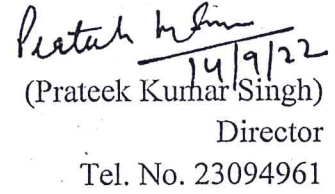 14/9/22
(Prateek Kumar Singh)
Director
Tel. No. 23094961